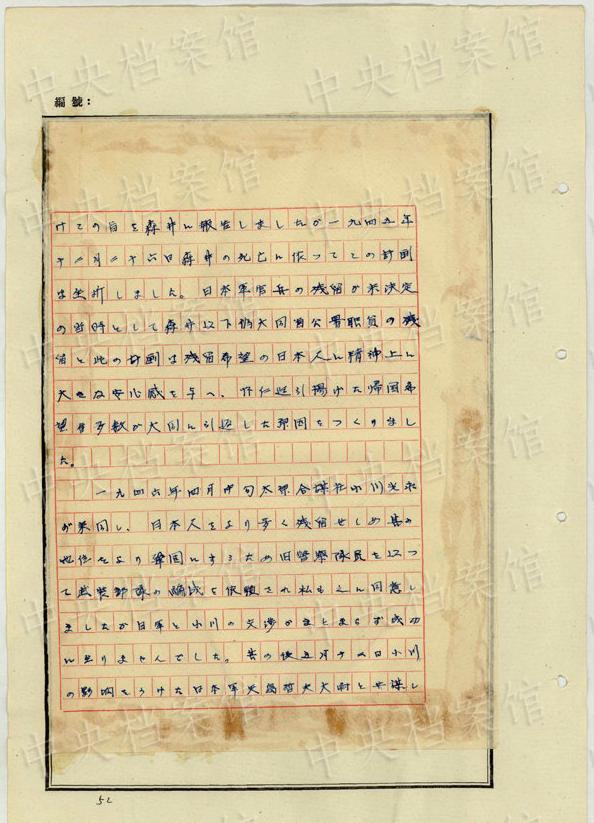 編號：
けての旨を森井に報告しましたが一九四五年
十二月二十六日森井の死亡に依ってこの計劃
は坐折しました。日本軍官兵の残留が未決定
の当時として森井以下 大同省公署職員の残
留と此の計劃は残留希望の日本人に精神上に
大きな安心感を与へ、怀仁迄引揚げた帰国希
望者多数が大同に引返した原因をつくりまし
た。
一九四六年四月中旬太原合謀社小川
が来同し、日本人をより多く残留せしめ其の
地位をより鞏固にするため旧警察隊員を以つ
て武装部隊の編成を依頼され私も之に同意し
ましたが日軍と小川の交渉がまとまらず成功
に至りませんでした。其の後五月 日小川
の影响をうけた日本軍矢島哲夫大尉と共謀し
52
中央档案馆